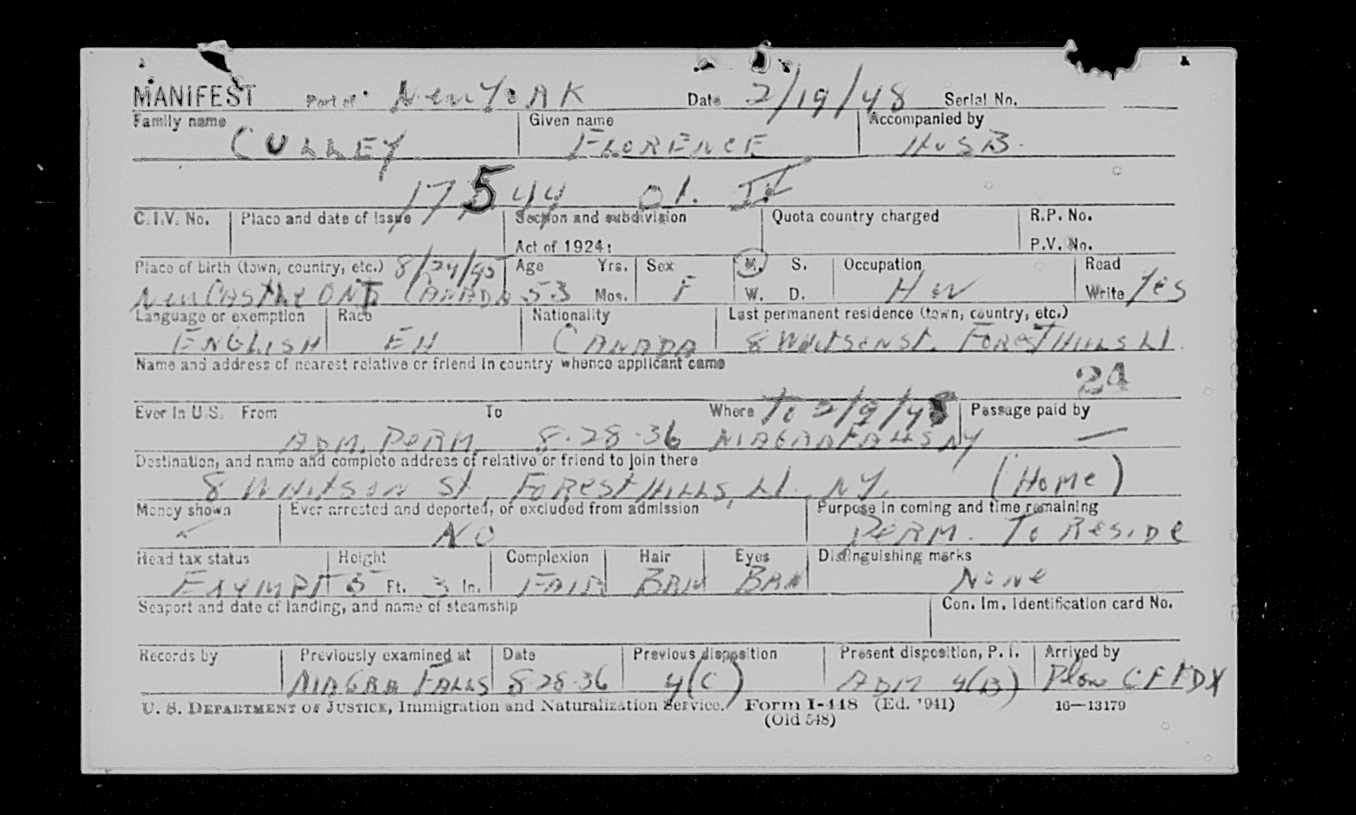 MANIFEST Port of New York Date 2/19/48 Serial No.
Family name Given name Accompanied by
CULLEY FLORENCE HUSB.
17544 01. IV
C.I.V. No. Place and date of issue Section and subdivision Quota country charged R.P. No.
Act of 1924: P.V. No.
Place of birth (town, country, etc.) 8/24/95 Age Yrs. Sex M. S. Occupation Read
NEWCASTLE ONT CANADA 53 Mos. F W. D. HW Write Yes
Language or exemption Race Nationality Last permanent residence (town, country, etc.)
ENGLISH EH CANADA 8 St. FOREST HILLS LI.
Name and address of nearest relative or friend in country whence applicant came
24
Ever in U.S. From To Where To 2/9/48 Passage paid by
ADM. PERM. 8-28-36 NIAGRA FALLS NY —
Destination, and name and complete address of relative or friend to join there
8 St. FOREST HILLS, LI. NY. (HOME)
Money shown Ever arrested and deported, or excluded from admission Purpose in coming and time remaining
NO PERM. TO RESIDE
Head tax status Height Complexion Hair Eyes Distinguishing marks
EXYMPT 5 Ft. 3 In. FAIR BRN BRN NONE
Seaport and date of landing, and name of steamship Con. Im. Identification card No.
Records by Previously examined at Date Previous disposition Present disposition, P. I. Arrived by
NIAGRA FALLS 8-28-36 4(C) ADM 4(B) Plane CF FDX
U. S. DEPARTMENT OF JUSTICE, Immigration and Naturalization Service. Form I-448 (Ed. 1941) 16—13179
(Old 548)